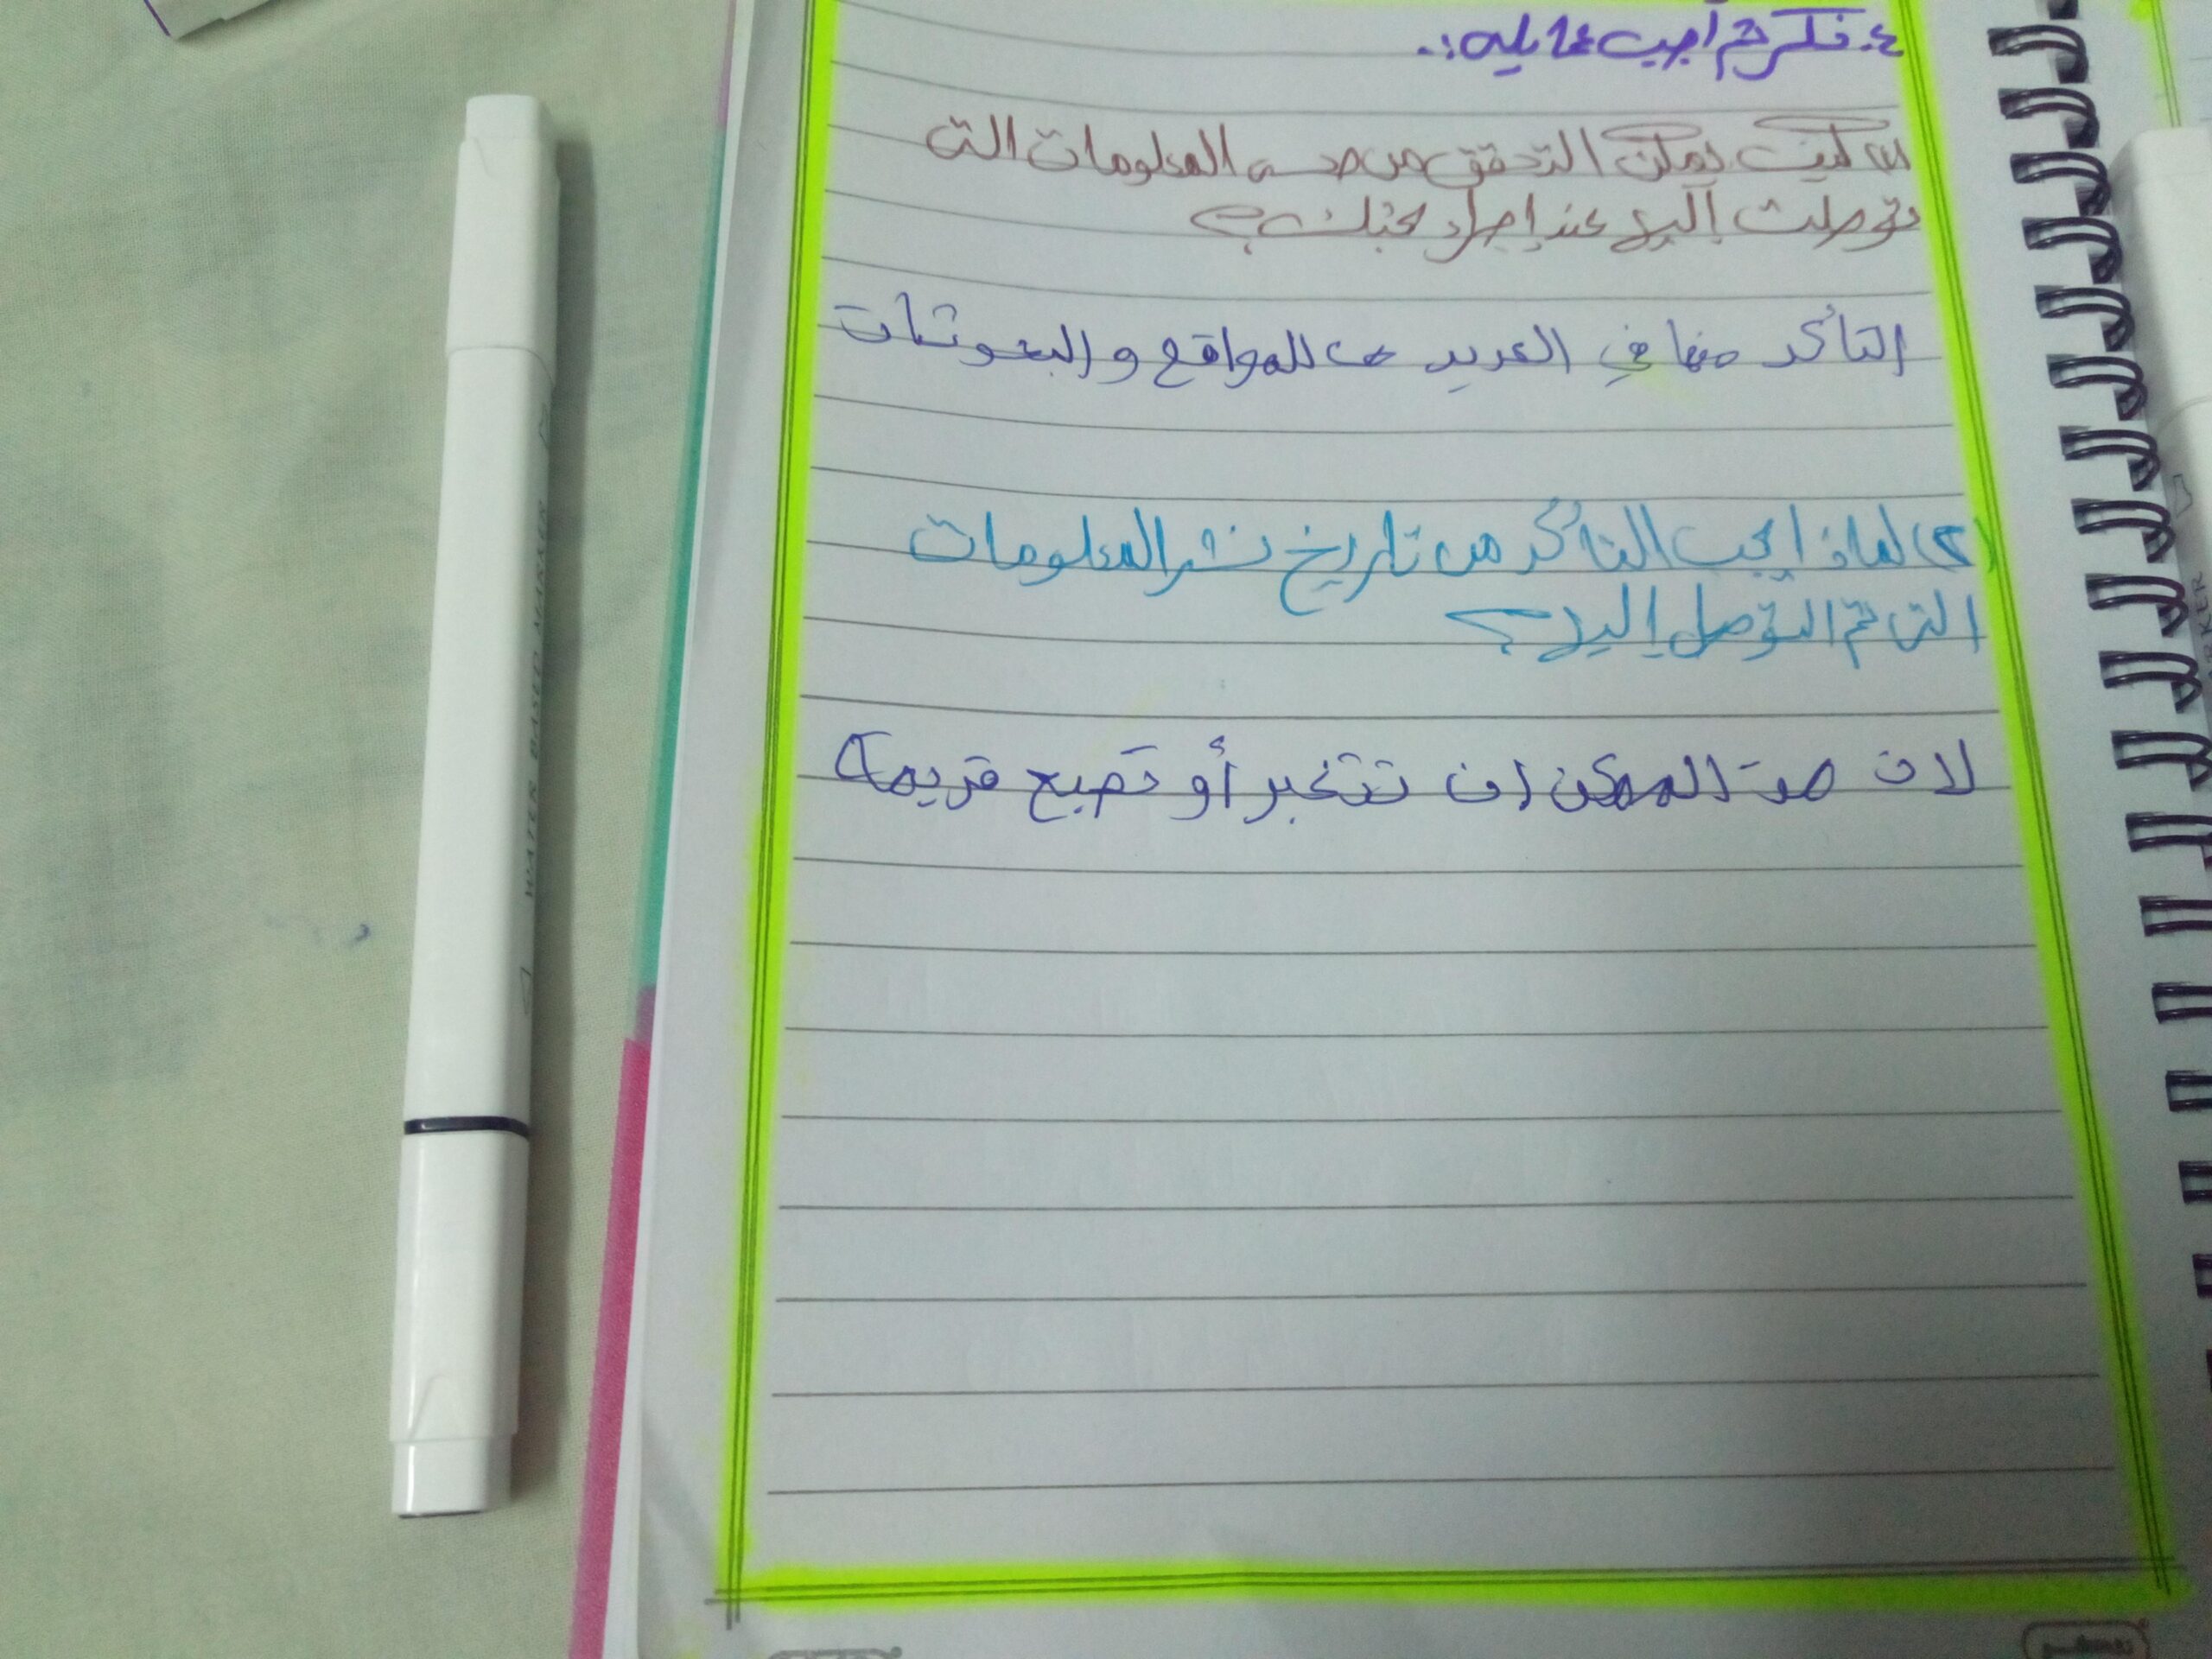 ٤. فكر ثم أجب عما يليه :.
(١) كيف يمكن التحقق من صحة المعلومات التى
توصلت إليها عند إجراء بحثك ؟
التأكد منها في العديد من المواقع و البحوثات
(٢) لماذا يجب التأكد من تاريخ نشر المعلومات
التى تم التوصل إليها ؟
لان من الممكن ان تتغير أو تصبح قديمة
WATER BASED MARKER